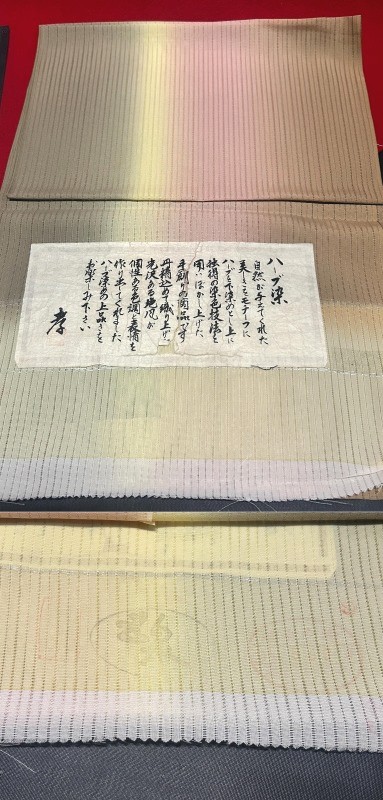 ハーブ染
自然が与えてくれた
美しさをモチーフに
ハーブを下染のとし上に
独得の染色技法を
用いぼかし上げた
手造りの商品です
丹精込めて織り上げ
光沢ある地風が
個性ある色調と表情を
作り出してくれました
ハーブ染めの上品さを
お楽しみ下さい
孝